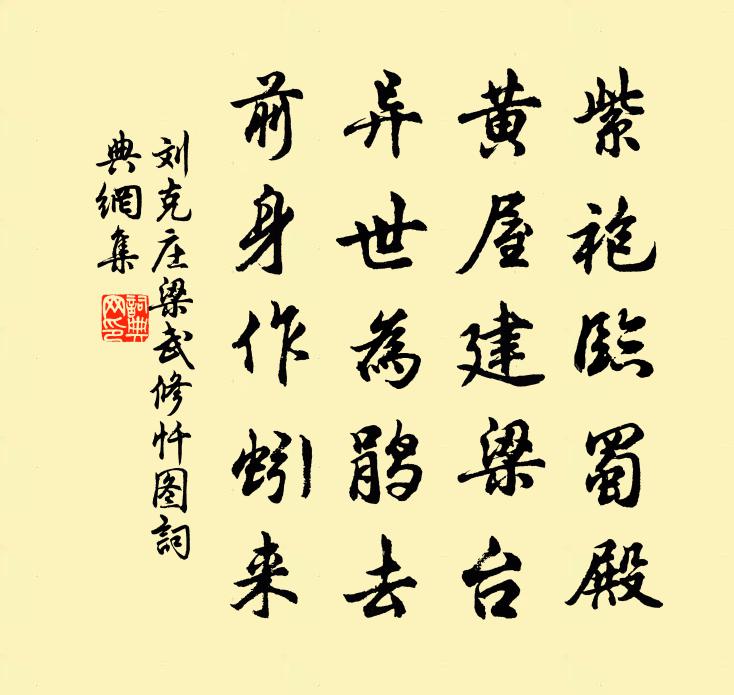 紫袍临蜀殿
黄屋建梁台
异世為鹃去
前身作蚓来
刘克庄梁武修忏图詞
典網集
詞典
网印